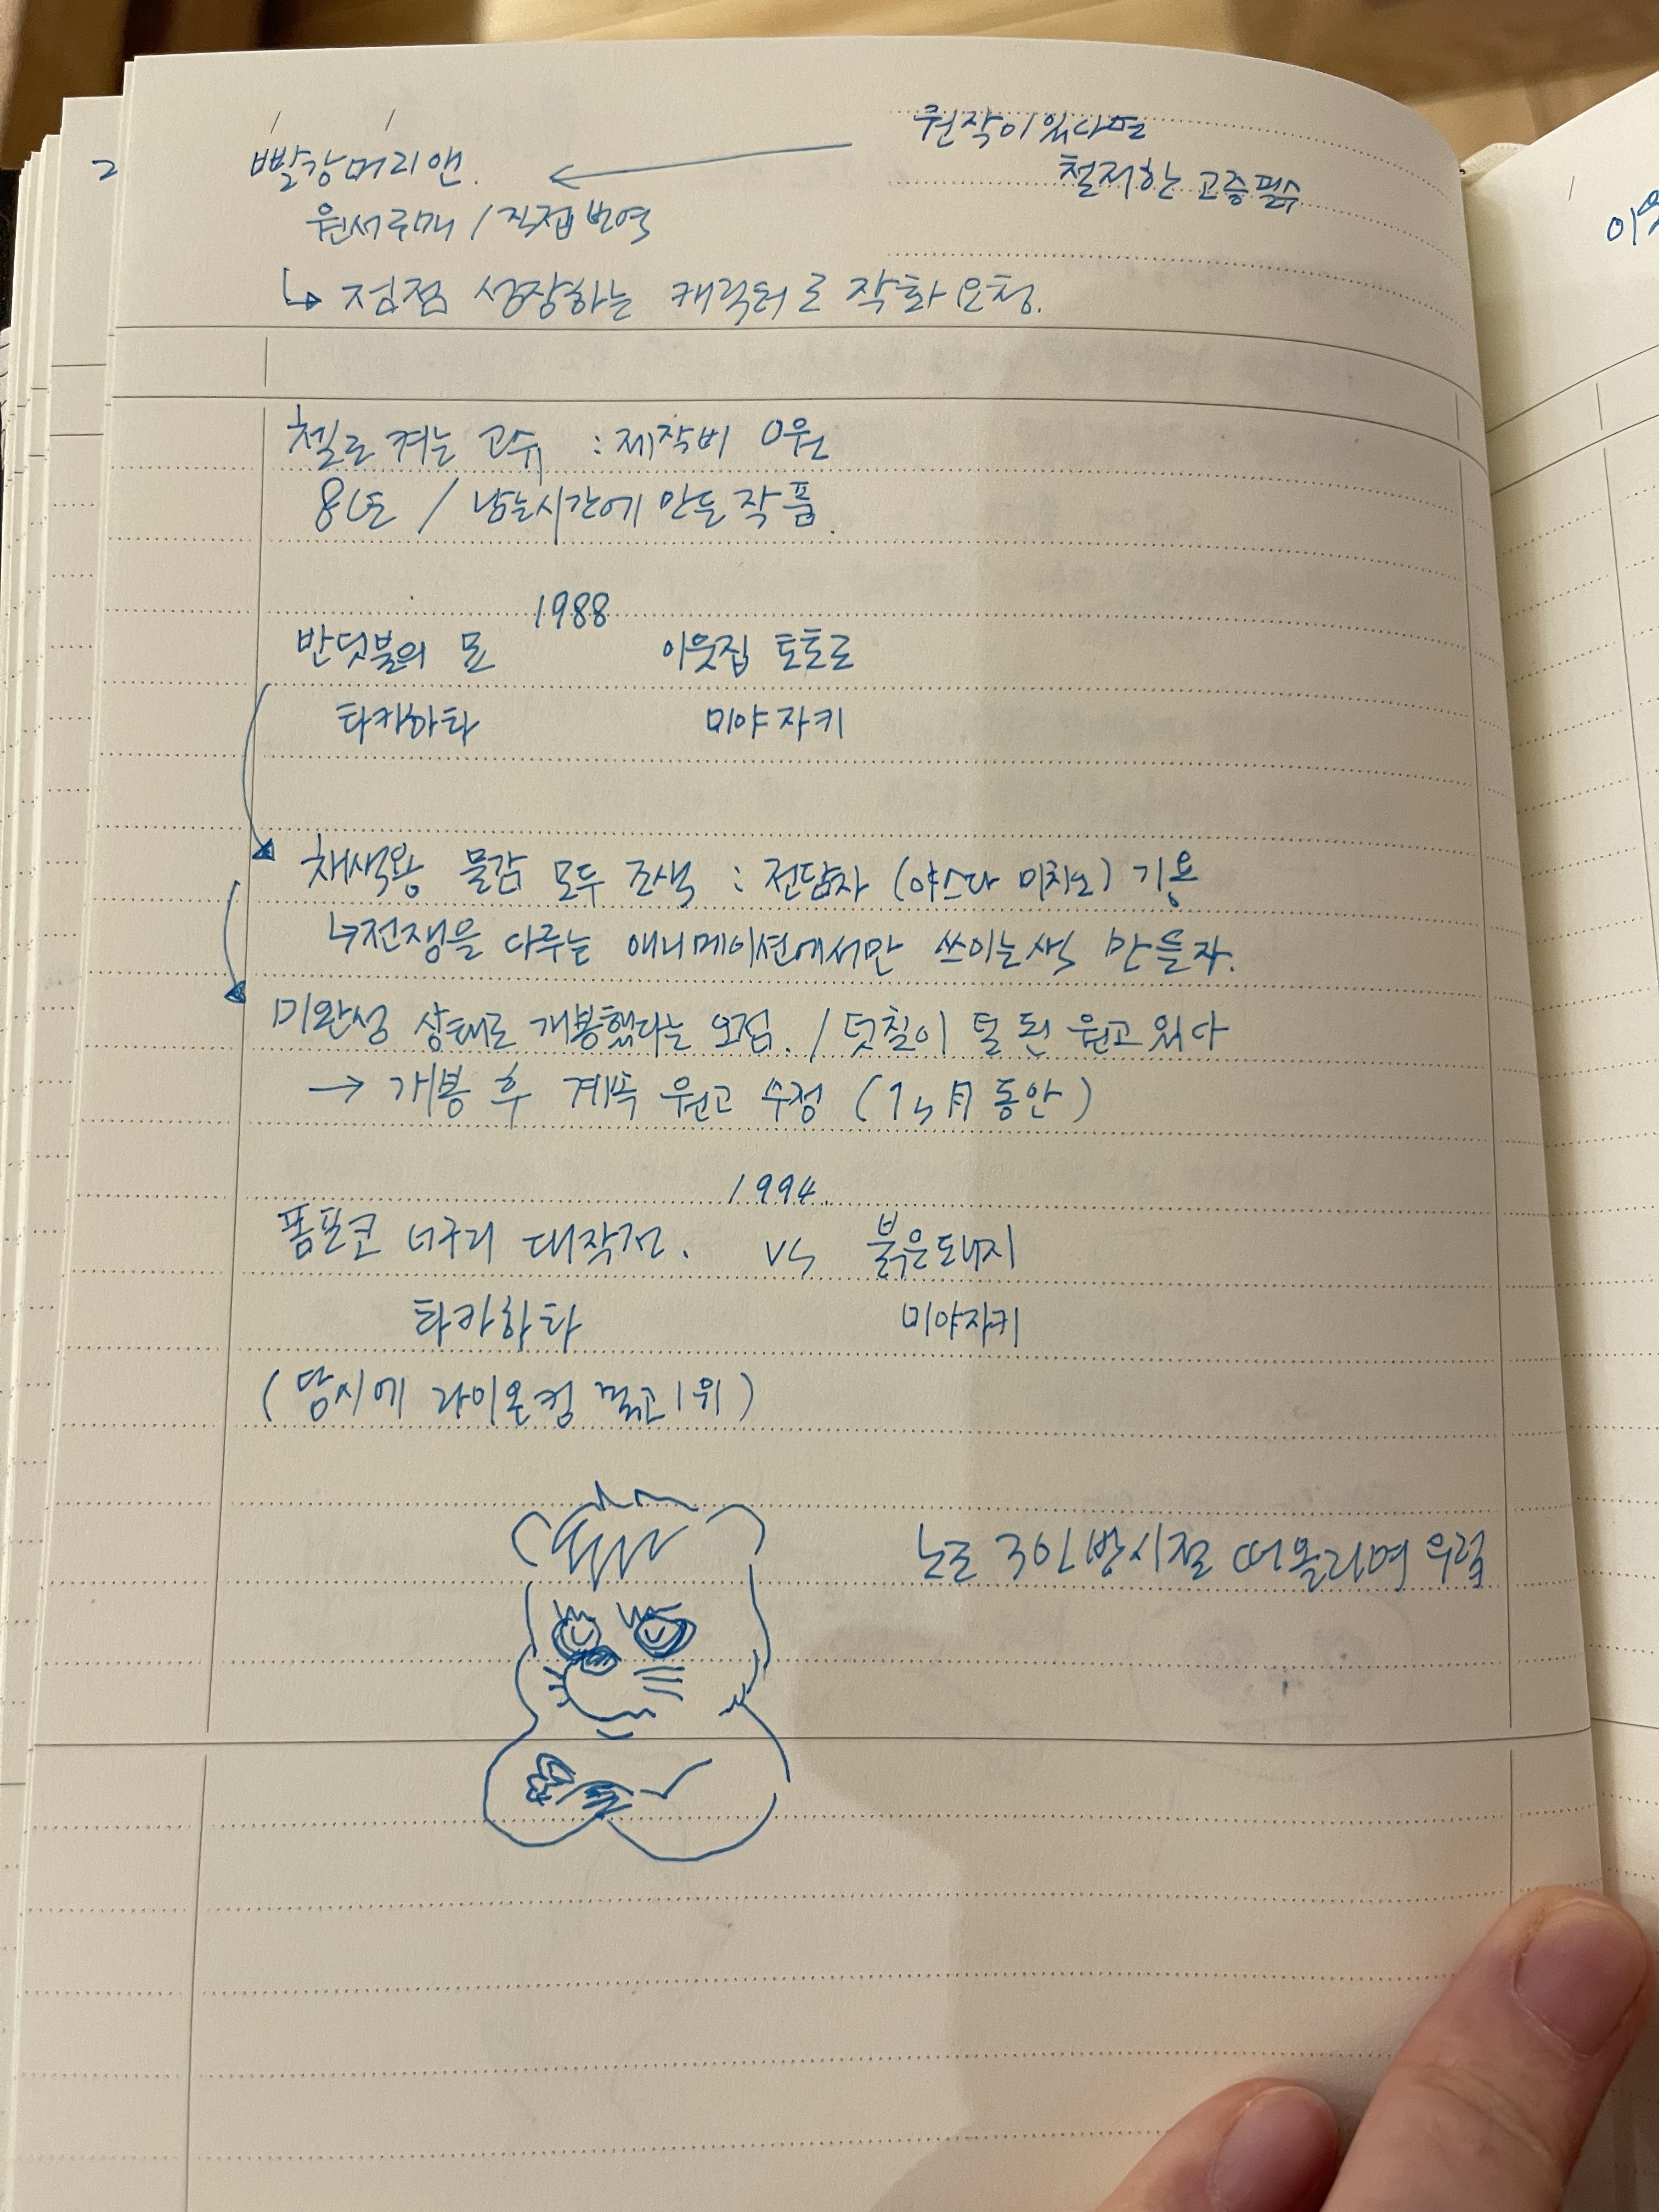 빨강머리앤.
원작이있다면
철저한 고증필수
원서구매 / 직접번역
↳ 점점 성장하는 캐릭터로 작화요청.
첼로 켜는 고슈 : 제작비 0원
8년 / 남는시간에 만든작품.
1988
반딧불의 묘 이웃집 토토로
타카하타 미야자키
채색용 물감 모두 조색 : 전담자 (야스다 미치요) 기용
↳전쟁을 다루는 애니메이션에서만 쓰이는색 만들자.
미완성 상태로 개봉했다는 오점. / 덧칠이 덜 된 원고있다
→ 개봉 후 계속 원고 수정 (1개月동안)
1994.
폼포코 너구리 대작전. vs 붉은돼지
타카하타 미야자키
(당시에 라이온킹 꺾고1위)
노조 3인방시절 떠올리며
이웃